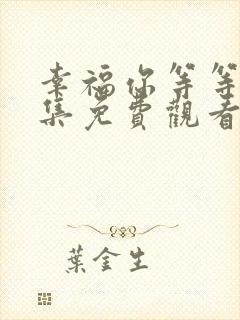 幸福你等等
集免費觀看
葉金生